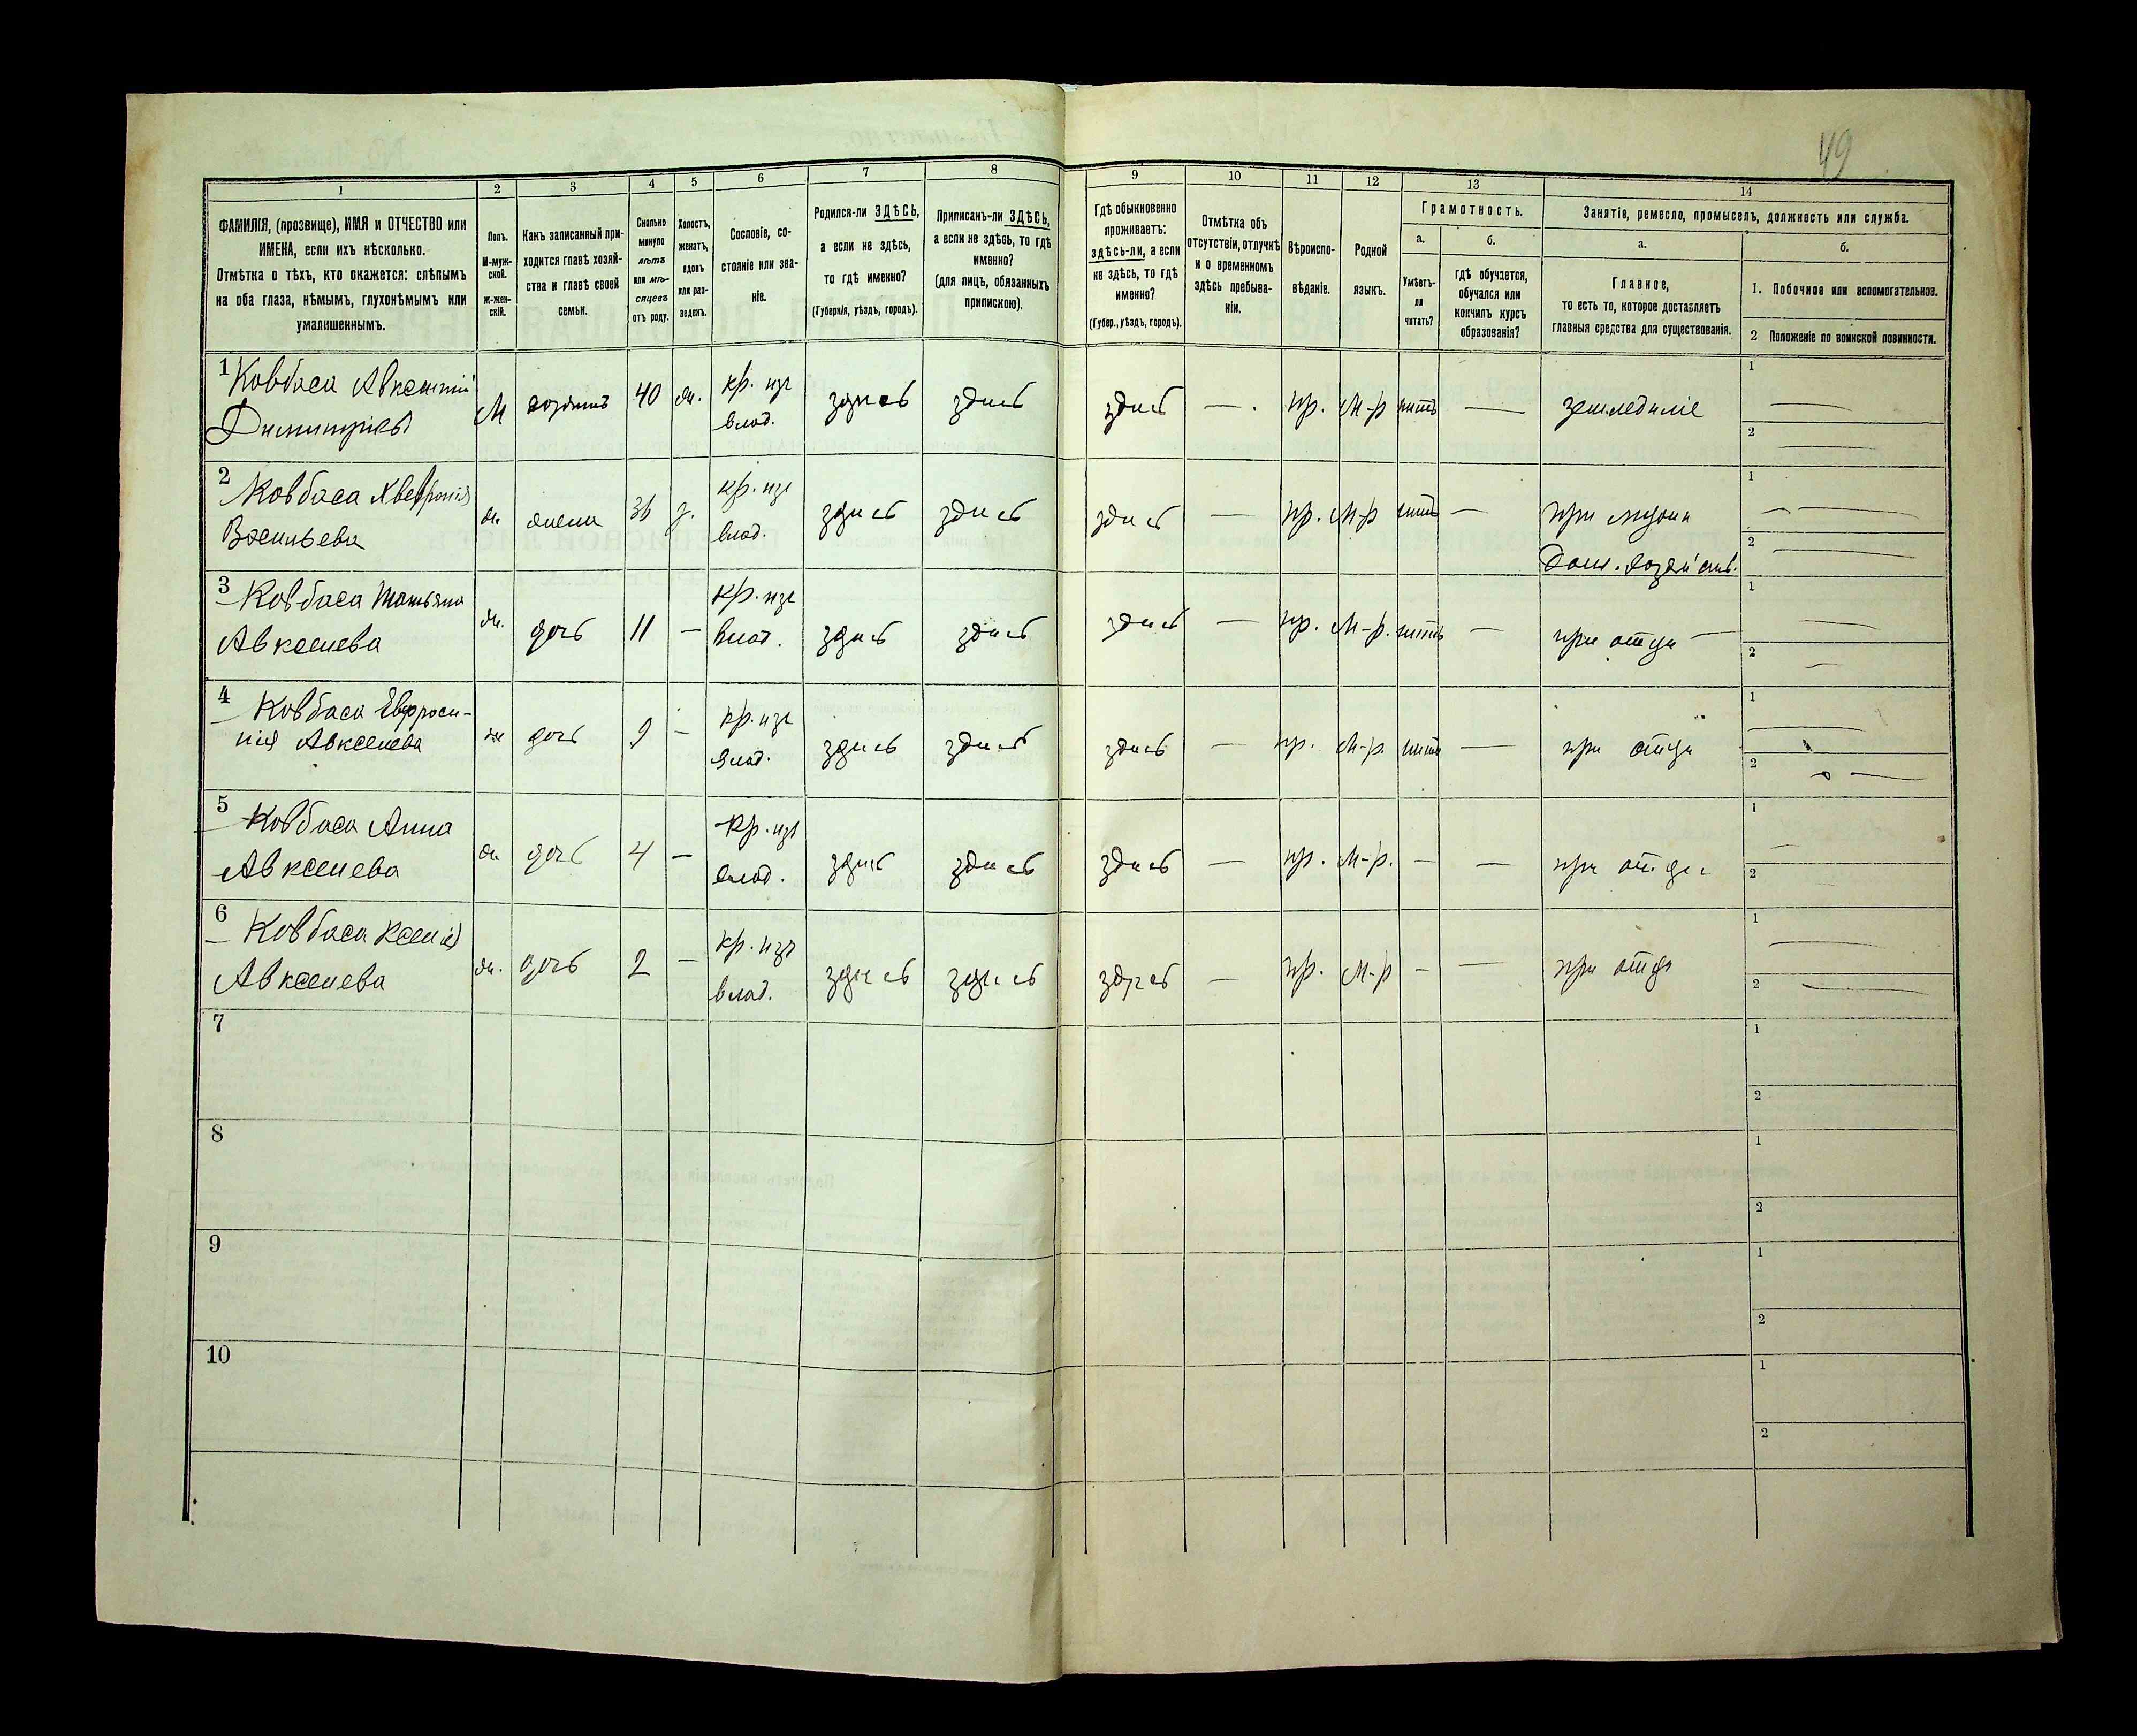 49
1 2 3 4 5 6 7 8 9 10 11 12 13 14
ФАМИЛІЯ, (прозвище), ИМЯ и ОТЧЕСТВО или
ИМЕНА, если ихъ нѣсколько.
Отмѣтка о тѣхъ, кто окажется: слѣпымъ
на оба глаза, нѣмымъ, глухонѣмымъ или
умалишеннымъ.
Полъ.
М-муж-
ской.
ж-жен-
скій.
Какъ записанный при-
ходится главѣ хозяй-
ства и главѣ своей
семьи.
Сколько
минуло
лѣтъ
или мѣ-
сяцевъ
отъ роду.
Холостъ,
женатъ,
вдовъ
или раз-
веденъ.
Сословіе, со-
стояніе или зва-
ніе.
Родился-ли ЗДѢСЬ,
а если не здѣсь,
то гдѣ именно?
(Губернія, уѣздъ, городъ).
Приписанъ-ли ЗДѢСЬ,
а если не здѣсь, то гдѣ
именно?
(для лицъ, обязанныхъ
припискою).
Гдѣ обыкновенно
проживаетъ:
здѣсь-ли, а если
не здѣсь, то гдѣ
именно?
(Губер., уѣздъ, городъ).
Отмѣтка объ
отсутствіи, отлучкѣ
и о временномъ
здѣсь пребыва-
ніи.
Вѣроиспо-
вѣданіе.
Родной
языкъ.
Грамотность.
а.
Умѣетъ-
ли
читать?
б.
гдѣ обучается,
обучался или
кончилъ курсъ
образованія?
Занятіе, ремесло, промыселъ, должность или служба.
а.
Главное,
то есть то, которое доставляетъ
главныя средства для существованія.
б.
1. Побочное или вспомогательное.
2 Положеніе по воинской повинности.
1 Ковбаса Авксентій
Димитріевъ
М хозяинъ 40 ж. кр. изъ
влад.
здись здись здись — пр. М-р нитъ — земледиліе
1 —
2 —
2 Ковбаса
Васильева
ж жена з. кр. изъ
влад.
здись здись здись — пр. М-р нитъ — при мужи
Дом. хозяйств.
1 —
2 —
3 Ковбаса Татьяна
Авксенева
ж. дочь 11 — кр. изъ
влад.
здись здись здись — пр. М-р. нитъ — при отци —
1 —
2 —
4 Ковбаса Евфроси-
нія Авксенева
ж дочь 9 — кр. изъ
влад.
здись здись здись — пр. М-р. нитъ — при отци
1 —
2 —
5 Ковбаса Анна
Авксенева
ж дочь 4 — кр. изъ
влад.
здись здись здись — пр. М-р. — — при отци
1 —
2
6 Ковбаса Ксенія
Авксенева
ж. дочь 2 — кр. изъ
влад.
здись здись здись — пр. М-р — — при отци
1 —
2 —
7
1
2
8
1
2
9
1
2
10
1
2